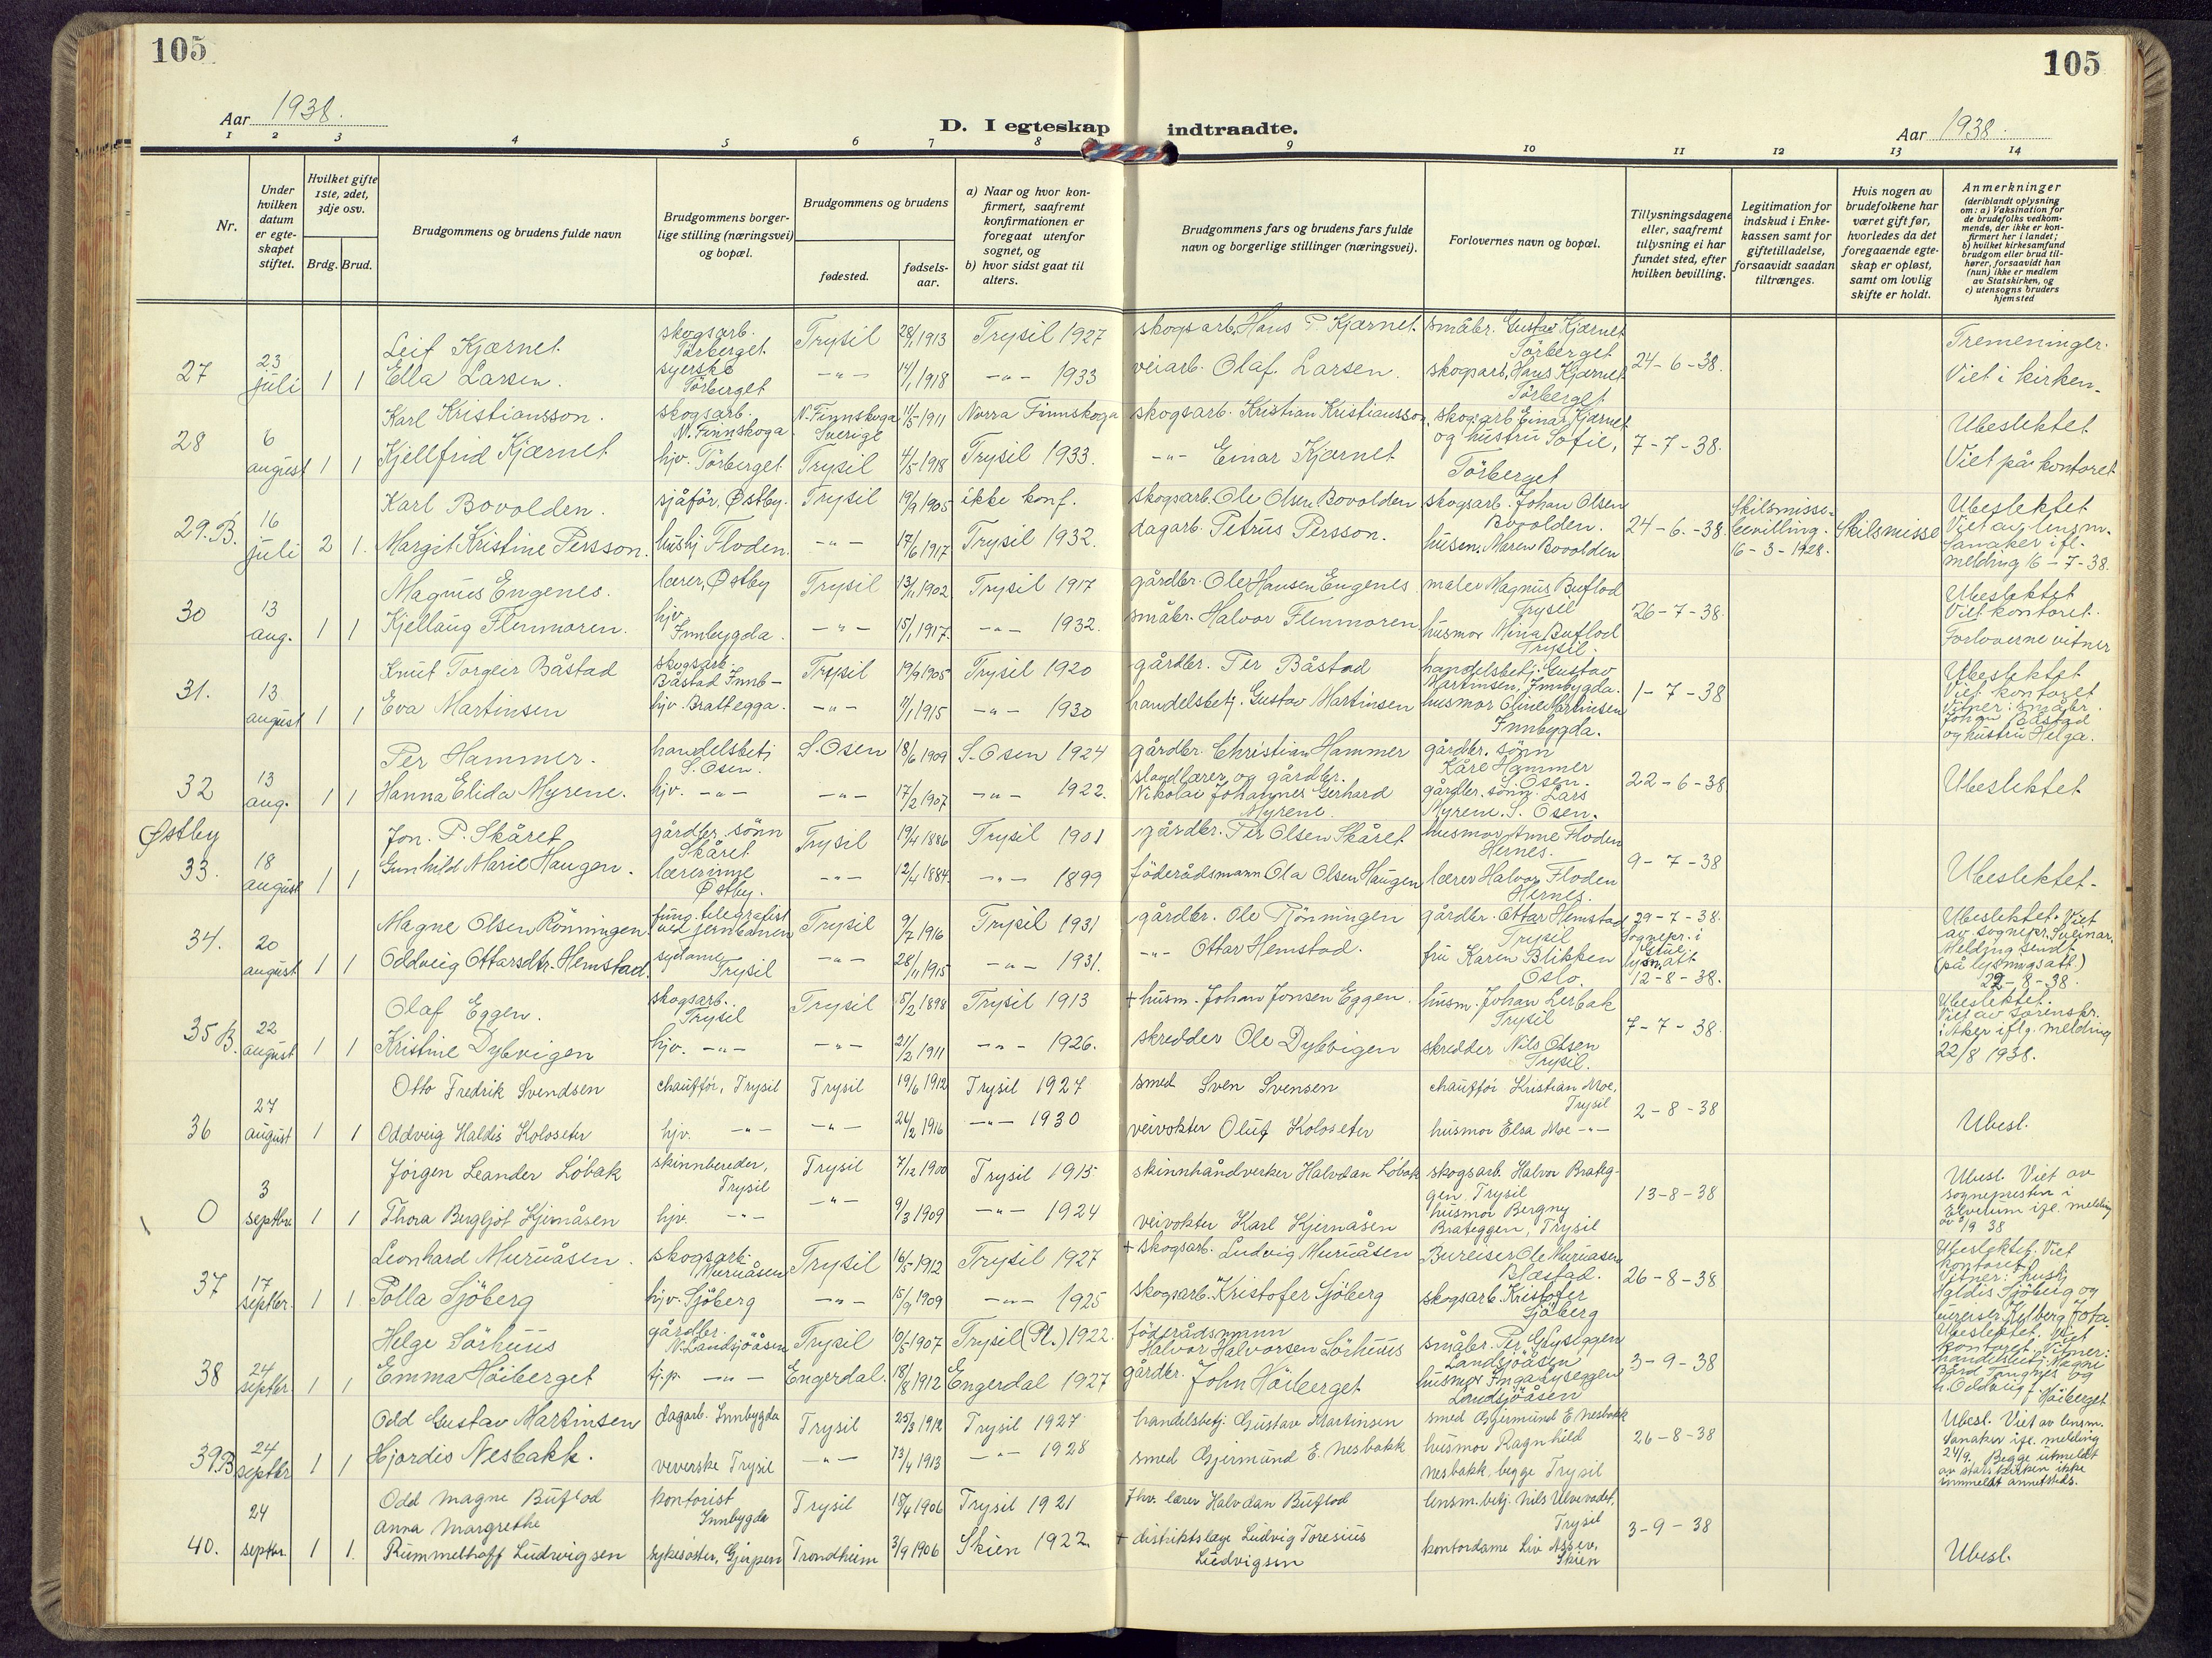 105
105
Aar 1938.
D. I egteskap indtraadte.
Aar 1938.
1 2 3 4 5 6 7 8 9 10 11 12 13 14
Nr.
Under hvilken datum er egteskapet stiftet.
Hvilket gifte 1ste, 2det, 3dje osv.
Brdg. Brud.
Brudgommens og brudens fulde navn
Brudgommens borgerlige stilling (næringsvei) og bopæl.
Brudgommens og brudens
fødested.
fødselsaar.
a) Naar og hvor konfirmert, saafremt konfirmationen er foregaat utenfor sognet, og
b) hvor sidst gaat til alters.
Brudgommens fars og brudens fars fulde navn og borgerlige stillinger (næringsvei).
Forlovernes navn og bopæl.
Tillysningsdagene eller, saafremt tillysning ei har fundet sted, efter hvilken bevilling.
Legitimation for indskud i Enkekassen samt for giftetilladelse, forsaavidt saadan tiltrænges.
Hvis nogen av brudefolkene har været gift før, hvorledes da det foregaaende egteskap er opløst, samt om lovlig skifte er holdt.
Anmerkninger (deriblandt oplysning om: a) Vaksination for de brudefolks vedkommende, der ikke er konfirmert her i landet; b) hvilket kirkesamfund brudgom eller brud tilhører, forsaavidt han (hun) ikke er medlem av Statskirken, og c) utensogns bruders hjemsted
27 23 juli 1 1
Leif Kjærnet skogsarb. Törberget Trysil 28/1 1913 Trysil 1927 skogsarb. Hans P. Kjærnet småbr. Gustav Kjærnet Törberget 24-6-38. Tremeninger.
Ella Larsen. syerske Törberget -"- 14/1 1918 -"- 1933 veiarb. Olaf Larsen. skogsarb. Hans Kjærnet Törberget Viet i kirken.
28 6 august 1 1
Karl Kristiansson. skogsarb. N. Finnskoga N. Finnskoga Sverige 11/5 1911 Norra Finnskoga skogsarb. Kristian Kristiansson. skogsarb. Einar Kjærnet og hustru Sofie, Törberget 7-7-38. Ubeslektet
Kjellfrid Kjærnet hjv. Törberget Trysil 4/5 1918 Trysil 1933. -"- Einar Kjærnet Viet på kontoret
29.B. 16 juli 2 1.
Karl Bovolden. sjåför, Østby. Trysil 19/9 1905 ikke konf. skogsarb. Ole Olsen Bovolden skogsarb. Johan Olsen Bovolden. 24-6-38 Skilsmissebevilling. 16-3-1928. Skilsmisse Ubeslektet
Margit Kristine Persson. hushj Floden. -"- 17/6 1917 Trysil 1932. dagarb. Petrus Persson. husm. Maren Bovolden Viet av lensm. Sanaker ifl. melding 16-7-38.
30 13 aug. 1 1
Magnus Engenes. lærer, Østby Trysil 13/11 1902 Trysil 1917 gårdbr. Ole Hansen Engenes maler Magnus Buflod Trysil 26-7-38. Ubeslektet
Kjellaug Flenmoren. hjv Innbygda. -"- 15/1 1917. -"- 1932. småbr. Halvor Flenmoren husmor Mina Buflod Trysil. Viet kontoret. Forloverne vitner
31. 13 august 1 1
Knut Torgler Båstad skogsarb. Båstad Innb- Trysil 19/9 1905 Trysil 1920 gårdbr. Per Båstad handelsbetj. Gustav Martinsen, Innbygda. 1-7-38 Ubeslektet
Eva Martinsen hjv. Brattegga. -"- 11/1 1915 -"- 1930 handelsbetj. Gustav Martinsen husmor Oline Martinsen Innbygda. Viet kontoret Vitner: småbr. Johan Båstad og hustru Helga.
32 13 aug. 1 1
Per Hammer. handelsbetj S. Osen. S. Osen 18/6 1909 S. Osen 1924 gårdbr. Christian Hammer gårdbr. sönn Kåre Hammer S. Osen. 22-6-38
Hanna Elida Myrene. hjv. -"- -"- 17/2 1907 -"- 1922. landlærer og gårdbr. Nikolai Johannes Gerhard Myrene. gårdbr. sönn. Lars Myrene. S. Osen. Ubeslektet
Østby
33. 18 august 1 1
Jon. P. Skåret gårdbr. sönn Skåret Trysil 19/4 1886 Trysil 1901 gårdbr. Per Olsen Skåret husmor Anne Floden Hernes. 9-7-38
Gunhild Marie Haugen. lærerinne Østby. -"- 12/4 1884 -"- 1899 föderådsmann Ola Olsen Haugen lærer Halvor Floden Hernes. Ubeslektet.
34. 20 august 1 1
Magne Olsen Rönningen fung. telegrafist ved jernbanen Trysil 9/7 1916 Trysil 1931 gårdbr. Ole Rönningen gårdbr. Ottar Hemstad Trysil 29-7-38. Sognepr. i lysn. alt 12-8-38. Ubeslektet. Viet av sognepr.
Oddveig Ottarsdtr. Hemstad sydame Trysil -"- 28/11 1915 -"- 1931. -"- Ottar Hemstad. fru Karen Blikken Oslo. Melding sendt (på lysningsatt.) 22-8-38.
35 B. 22 august 1 1
Olaf Eggen. skogsarb. Trysil Trysil 15/2 1898 Trysil 1913 + husm. Johan Jonsen Eggen. husm. Johan Lerbak Trysil 7-7-38. Ubeslektet.
Kristine Dybvigen hjv. -"- -"- 21/2 1911 -"- 1926. skredder Ole Dybvigen skredder Nils Olsen Trysil. Viet av sorenskr. i Aker iflg. melding 22/8 1938.
36 27 august 1 1
Otto Fredrik Svendsen chauffør, Trysil Trysil 19/6 1912 Trysil 1927 smed Sven Svensen chauffør Kristian Moe, Trysil 2-8-38
Oddveig Haldis Koloseter hjv. -"- -"- 26/2 1916 -"- 1930 veivokter Oluf Koloseter husmor Elsa Moe -"- Ubesl.
0 3 septbr. 1 1
Jörgen Leander Löbak skinnbereder, Trysil Trysil 7/12 1900 Trysil 1915 skinnhåndverker Halvdan Löbak skogsarb. Halvor Brateggen. Trysil 13-8-38 Ubesl. Viet av sognepresten i Elverum ifl. melding av 3/9 38
Thora Bergljot Kjernåsen hjv. -"- -"- 9/3 1909 -"- 1924 veivokter Karl Kjernåsen husmor Bergny Brateggen, Trysil
37 17 septbr. 1 1
Leonhard Muruåsen. skogsarb. Muruåsen Trysil 16/5 1912 Trysil 1927 + skogsarb. Ludvig Muruåsen Bureiser Ole Muruåsen Blæstad. 26-8-38 Ubeslektet. Viet kontoret.
Polla Sjöberg hjv. Sjöberg -"- 15/9 1909 -"- 1925 skogsarb. Kristofer Sjöberg skogsarb. Kristofer Sjöberg Vitner: husj Haldis Sjöberg og bureiser
38 24 septbr. 1 1
Helge Sörhuus gårdbr. N. Landsjöåsen Trysil 10/5 1907 Trysil (Pl.) 1922. föderådsmann Halvor Halvorsen Sörhuus småbr. Per Gryseggen Landsjöåsen 3-9-38 Ubeslektet. Viet kontoret. Vitner:
Emma Höiberget tj.p. -"- Engerdal. 18/8 1912 Engerdal 1927 gårdbr. John Höiberget husmor Inga Gryseggen Landsjöåsen handelsbetj. Magne Bård og fr. Oddveig Höiberget
39B 24 septbr 1 1
Odd Gustav Martinsen dagarb. Innbygda Trysil 25/3 1912 Trysil 1927 handelsbetj. Gustav Martinsen smed Gjermund E Nesbakk 26-8-38 Ubesl. Viet av lensm. Sanaker ifl. melding
Hjördis Nesbakk. veverske Trysil -"- 13/4 1913 -"- 1928 smed Gjermund E. Nesbakk husmor Ragnhild Nesbakk, begge Trysil 24/9. Begge utmeldt av statskirken ikke innmeldt annetsteds.
40. 24 septbr. 1 1.
Odd Magne Buflod kontorist Innbygda Trysil 18/4 1906 Trysil 1921 fhv. lærer Halvdan Buflod lensm. betj. Nils Ulvevadet, Trysil 3-9-38
Anna Margrethe Rummelhoff Ludvigsen sykesöster, Gjerpen Trondheim 3/9 1906 Skien 1922 + distriktslæge Ludvig Toresius Ludvigsen kontordame Liv Asser, Skien Ubesl.